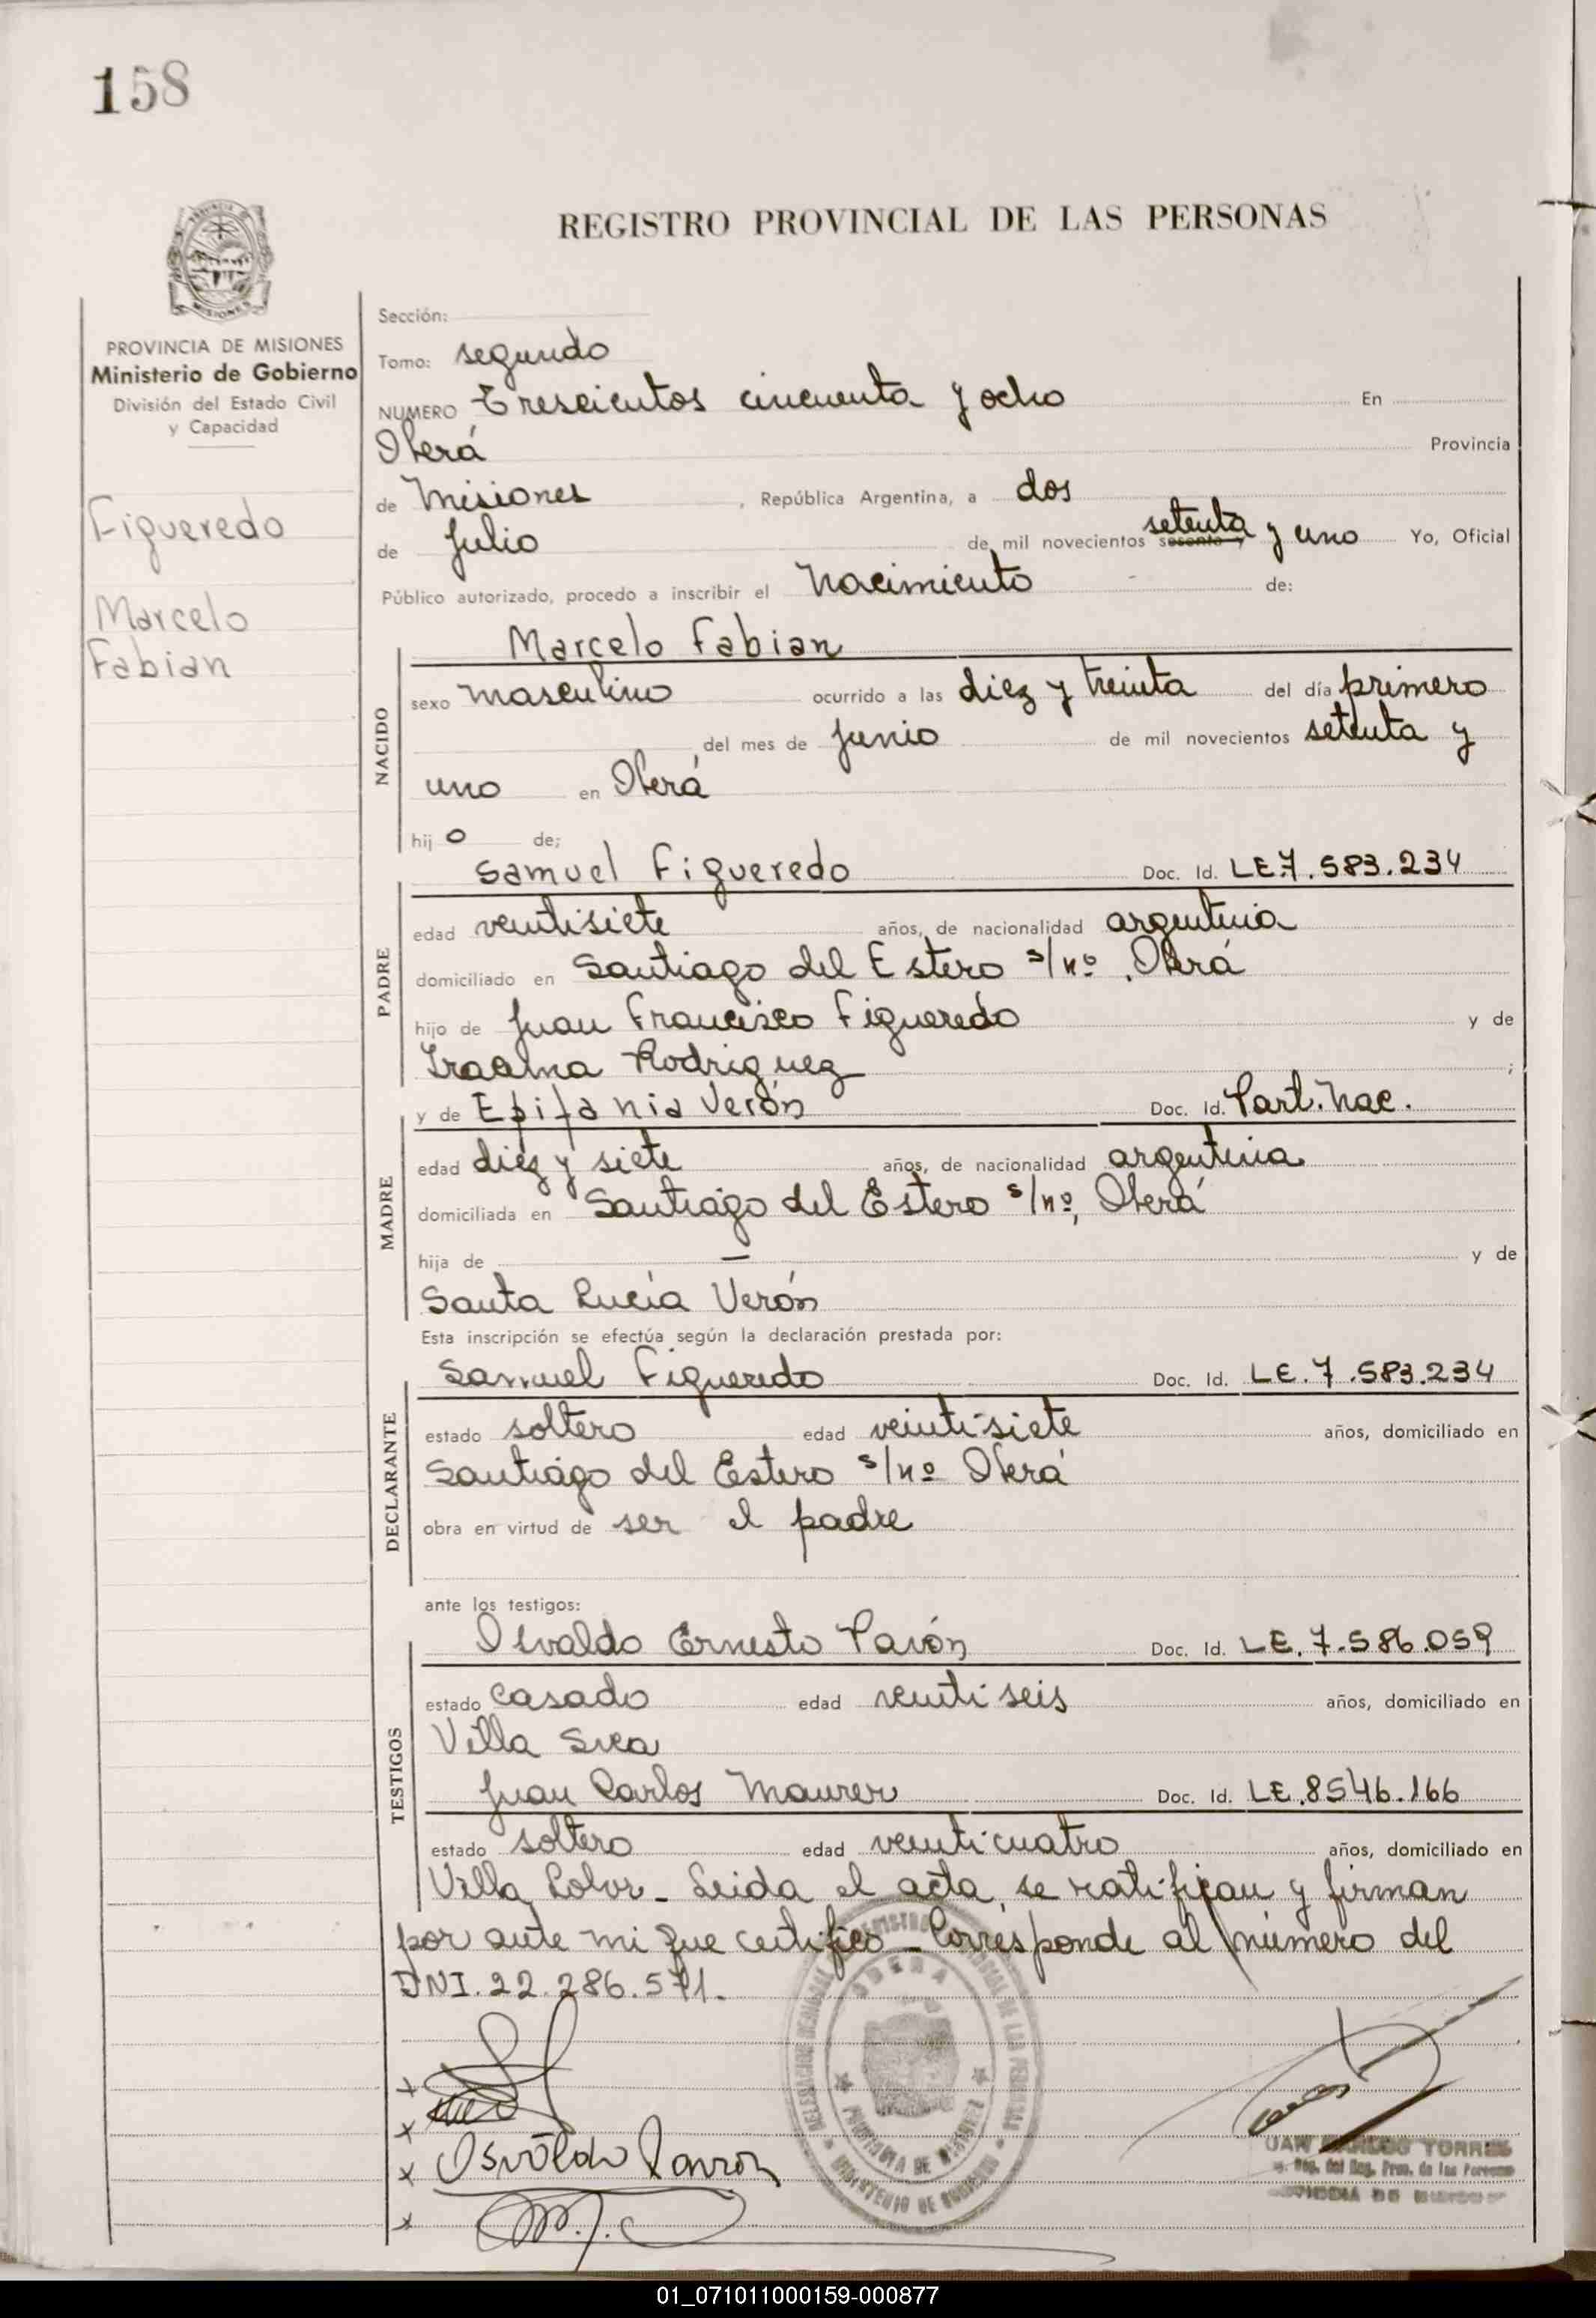 158
REGISTRO PROVINCIAL DE LAS PERSONAS
PROVINCIA DE MISIONES
Ministerio de Gobierno
División del Estado Civil
y Capacidad
Figueredo
Marcelo
Fabian
Sección:
Tomo: segundo
NUMERO Trescientos cincuenta y ocho En
Oberá Provincia
de Misiones, República Argentina, a dos
de Julio de mil novecientos sesenta y setenta y uno Yo, Oficial
Público autorizado, procedo a inscribir el Nacimiento de:
NACIDO
Marcelo Fabian
sexo masculino ocurrido a las diez y treinta del día primero
del mes de junio de mil novecientos setenta y
uno en Oberá
hijo de;
PADRE
Samuel Figueredo Doc. Id. LE.7.583.234
edad veintisiete años, de nacionalidad argentina
domiciliado en Santiago del Estero s/nº. Oberá
hijo de Juan Francisco Figueredo y de
Rodriguez;
MADRE
y de Epifania Verón Doc. Id. Part. Nac.
edad diez y siete años, de nacionalidad argentina
domiciliada en Santiago del Estero s/nº, Oberá
hija de — y de
Santa Lucía Verón
Esta inscripción se efectúa según la declaración prestada por:
DECLARANTE
Samuel Figueredo Doc. Id. LE.7.583.234
estado soltero edad veinti-siete años, domiciliado en
Santiago del Estero s/nº Oberá
obra en virtud de ser el padre
ante los testigos:
TESTIGOS
Osvaldo Ernesto Pavón Doc. Id. LE.7.586.059
estado casado edad veinti seis años, domiciliado en
Villa Svea
Juan Carlos Maurer Doc. Id. LE.8546.166
estado soltero edad veinticuatro años, domiciliado en
Villa - Leida el acta, se ratifican y firman
por ante mi que certifico - Corresponde al número del
DNI.22.286.571.
x
x
x Osvaldo Pavon
x
OBERA
PROVINCIA DE MISIONES
MINISTERIO DE GOBIERNO
JUAN CARLOS TORRES
01_071011000159-000877